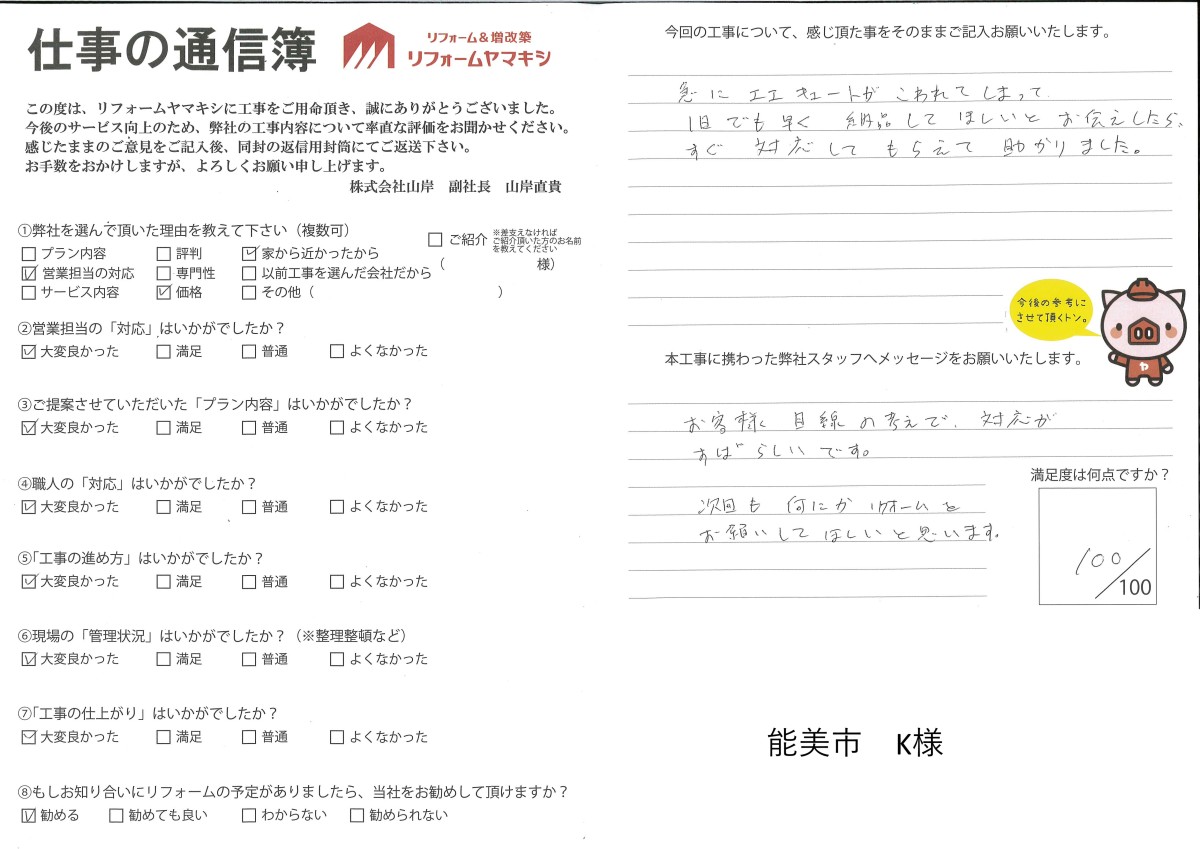 仕事の通信簿
リフォーム&増改築
リフォームヤマキシ
この度は、リフォームヤマキシに工事をご用命頂き、誠にありがとうございました。
今後のサービス向上のため、弊社の工事内容について率直な評価をお聞かせください。
感じたままのご意見をご記入後、同封の返信用封筒にてご返送下さい。
お手数をおかけしますが、よろしくお願い申し上げます。
株式会社山岸　副社長　山岸直貴
①弊社を選んで頂いた理由を教えて下さい（複数可）
□プラン内容 □評判 ☑家から近かったから
☑営業担当の対応 □専門性 □以前工事を選んだ会社だから
□サービス内容 ☑価格 □その他（　　）
□ご紹介 ※差支えなければ
ご紹介頂いた方のお名前
を教えてください
（　　様）
②営業担当の「対応」はいかがでしたか？
☑大変良かった □満足 □普通 □よくなかった
③ご提案させていただいた「プラン内容」はいかがでしたか？
☑大変良かった □満足 □普通 □よくなかった
④職人の「対応」はいかがでしたか？
☑大変良かった □満足 □普通 □よくなかった
⑤「工事の進め方」はいかがでしたか？
☑大変良かった □満足 □普通 □よくなかった
⑥現場の「管理状況」はいかがでしたか？（※整理整頓など）
☑大変良かった □満足 □普通 □よくなかった
⑦「工事の仕上がり」はいかがでしたか？
☑大変良かった □満足 □普通 □よくなかった
⑧もしお知り合いにリフォームの予定がありましたら、当社をお勧めして頂けますか？
☑勧める □勧めても良い □わからない □勧められない
今回の工事について、感じ頂た事をそのままご記入お願いいたします。
急に エエキュートが こわれてしまって
1日でも早く 納品して ほしいと お伝えしたら、
すぐ 対応して もらえて 助かりました。
今後の参考に
させて頂くトン。
ヤ
本工事に携わった弊社スタッフへメッセージをお願いいたします。
お客様 目線の考えで、対応が
すばらしいです。
次回も 何にか リフォームを
お願いして ほしいと思います。
満足度は何点ですか？
100/100
能美市　K様